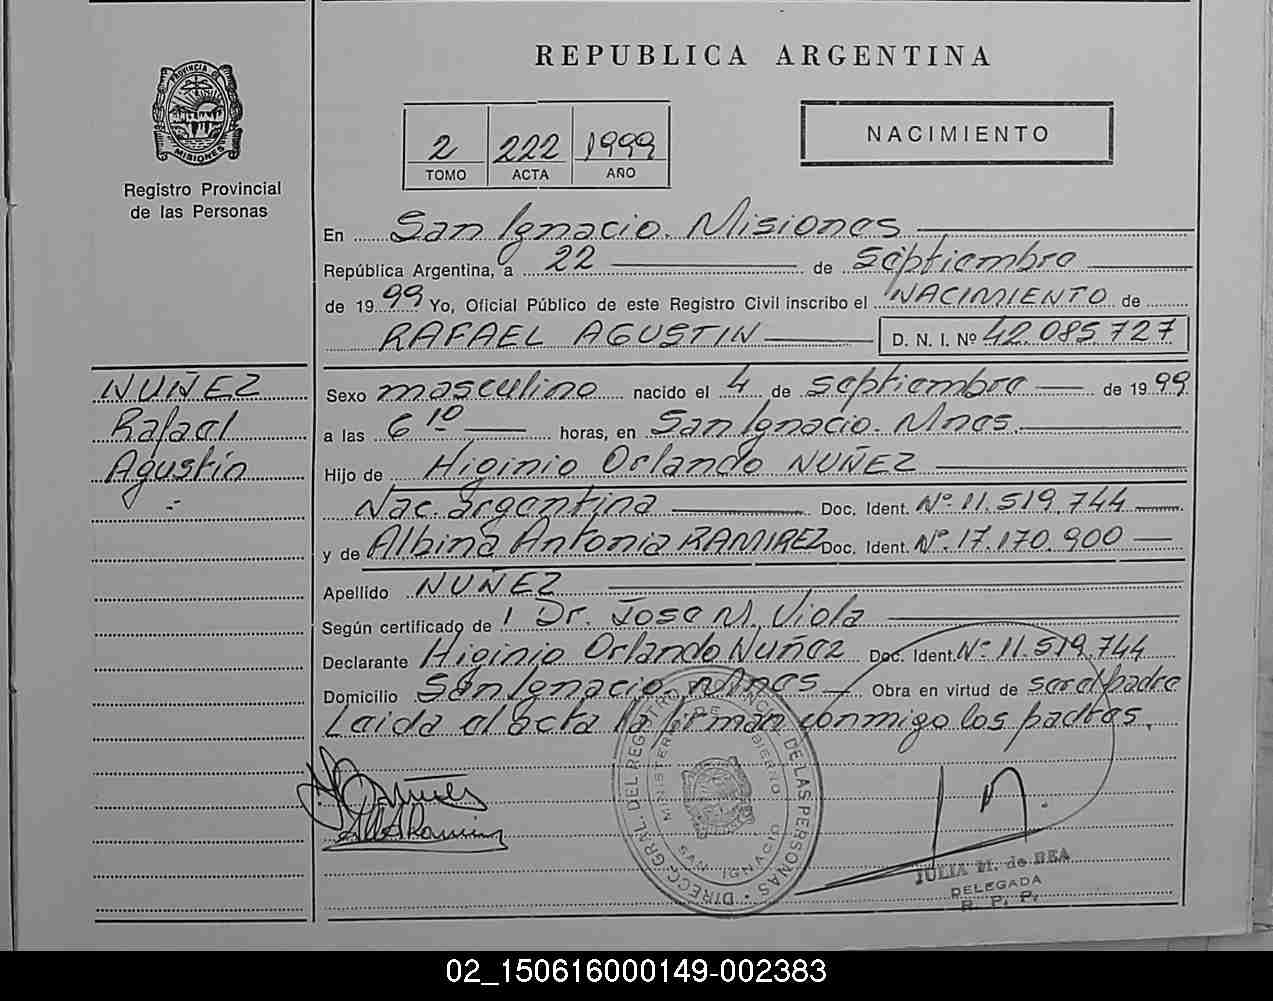 PROVINCIA DE
MISIONES
Registro Provincial
de las Personas
REPUBLICA ARGENTINA
2 222 1999
TOMO ACTA AÑO
NACIMIENTO
En San Ignacio. Misiones
República Argentina, a 22 de septiembre
de 1999 Yo, Oficial Público de este Registro Civil inscribo el NACIMIENTO de
RAFAEL AGUSTIN D. N. I. Nº 42.085.727
NUÑEZ
Rafael
Agustín
Sexo masculino nacido el 4 de septiembre de 1999
a las 6 10 horas, en San Ignacio. Mnes.
Hijo de Higinio Orlando NUÑEZ
Nac. argentina Doc. Ident. Nº 11.519.744
y de Albina Antonia RAMIREZ Doc. Ident. Nº 17.170.900
Apellido NUÑEZ
Según certificado de Dr. Jose M. Viola
Declarante Higinio Orlando Nuñez Doc. Ident. Nº 11.519.744
Domicilio San Ignacio. Mnes Obra en virtud de ser el padre
Leida el acta la firman conmigo los padres.
DIRECC. GRAL. DEL REGISTRO PROVINCIAL DE LAS PERSONAS
MINISTERIO DE GOBIERNO
SAN IGNACIO
JULIA M. de BEA
DELEGADA
R. P. P.
02_150616000149-002383